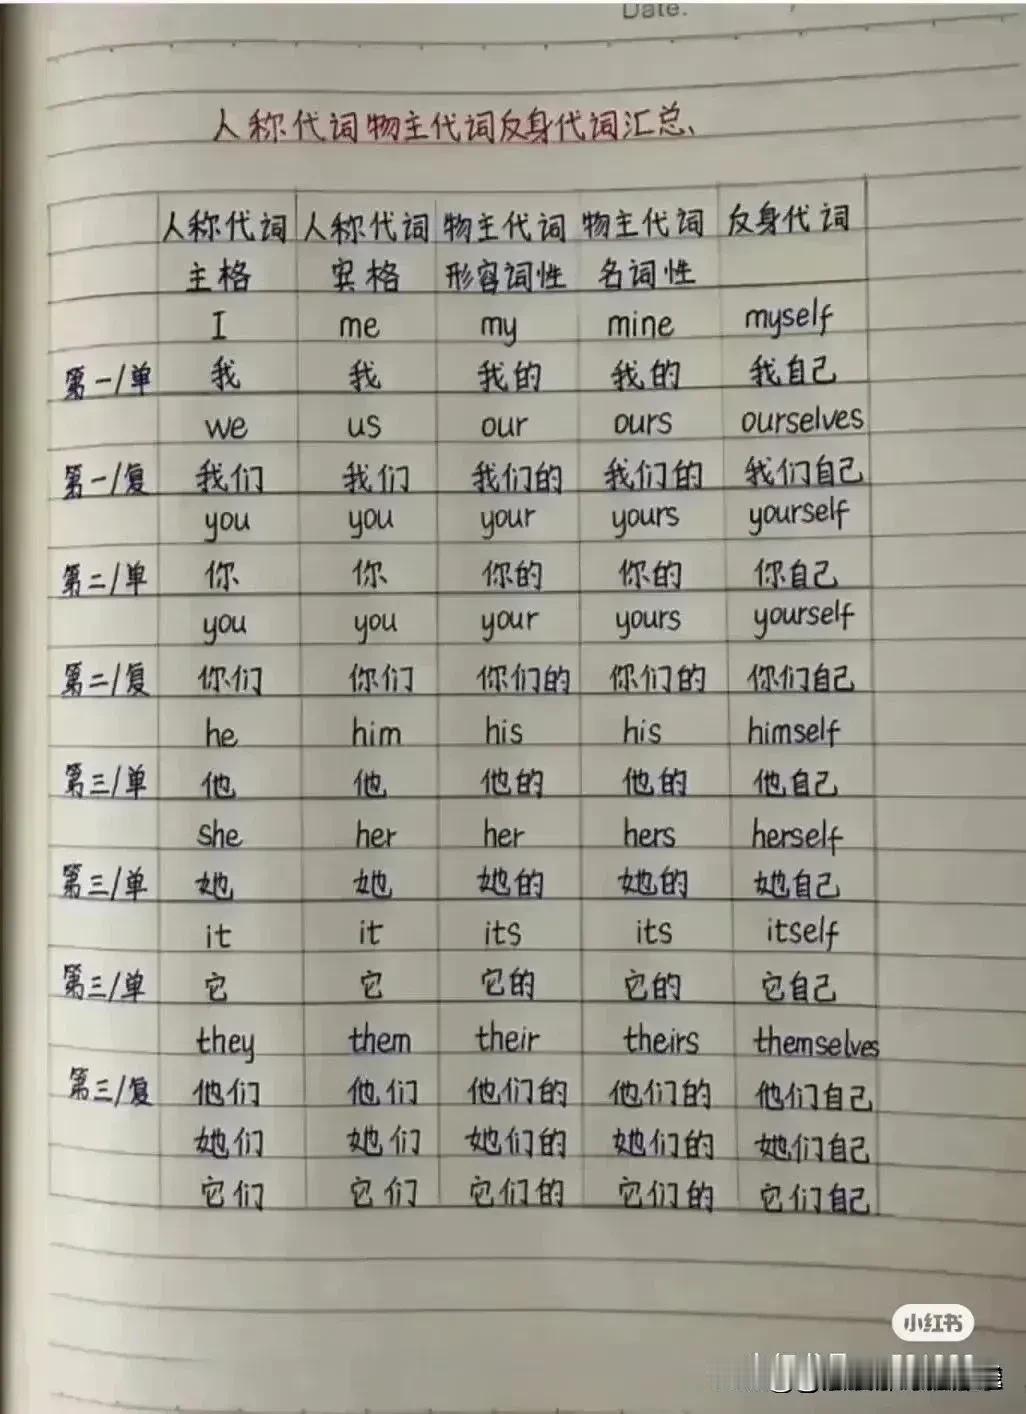 Date:
人称代词物主代词反身代词汇总、
人称代词 人称代词 物主代词 物主代词 反身代词
主格 宾格 形容词性 名词性
I me my mine myself
第一/单 我 我 我的 我的 我自己
we us our ours ourselves
第一/复 我们 我们 我们的 我们的 我们自己
you you your yours yourself
第二/单 你 你 你的 你的 你自己
you you your yours yourself
第二/复 你们 你们 你们的 你们的 你们自己
he him his his himself
第三/单 他 他 他的 他的 他自己
she her her hers herself
第三/单 她 她 她的 她的 她自己
it it its its itself
第三/单 它 它 它的 它的 它自己
they them their theirs themselves
第三/复 他们 他们 他们的 他们的 他们自己
她们 她们 她们的 她们的 她们自己
它们 它们 它们的 它们的 它们自己
小红书